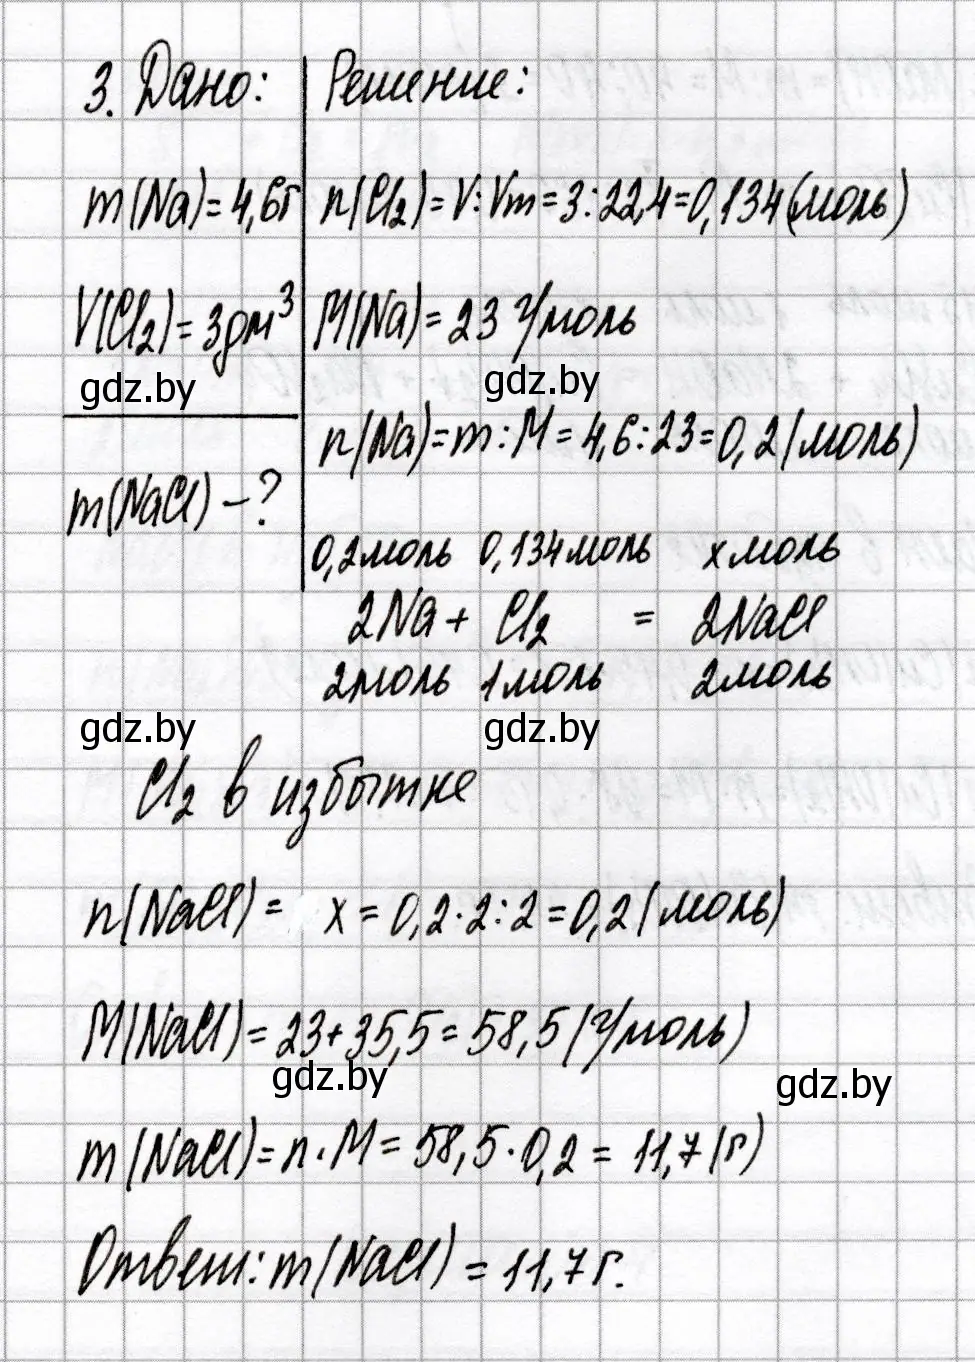 3. Дано:
m(Na)=4,6г
V(Cl₂)=3дм³
gdz.by
m(NaCl) – ?
Решение:
n(Cl₂)=V:Vm=3:22,4=0,134(моль)
M(Na)=23 г/моль
gdz.by
n(Na)=m:M=4,6:23=0,2(моль)
0,2моль 0,134моль x моль
2Na + Cl₂ = 2NaCl
2моль 1моль 2моль
gdz.by gdz.by
Cl₂ в избытке
n(NaCl)= x = 0,2·2:2=0,2(моль)
M(NaCl)=23+35,5=58,5(г/моль)
gdz.by gdz.by
m(NaCl)=n·M=58,5·0,2=11,7(г)
Ответ: m(NaCl)=11,7г.